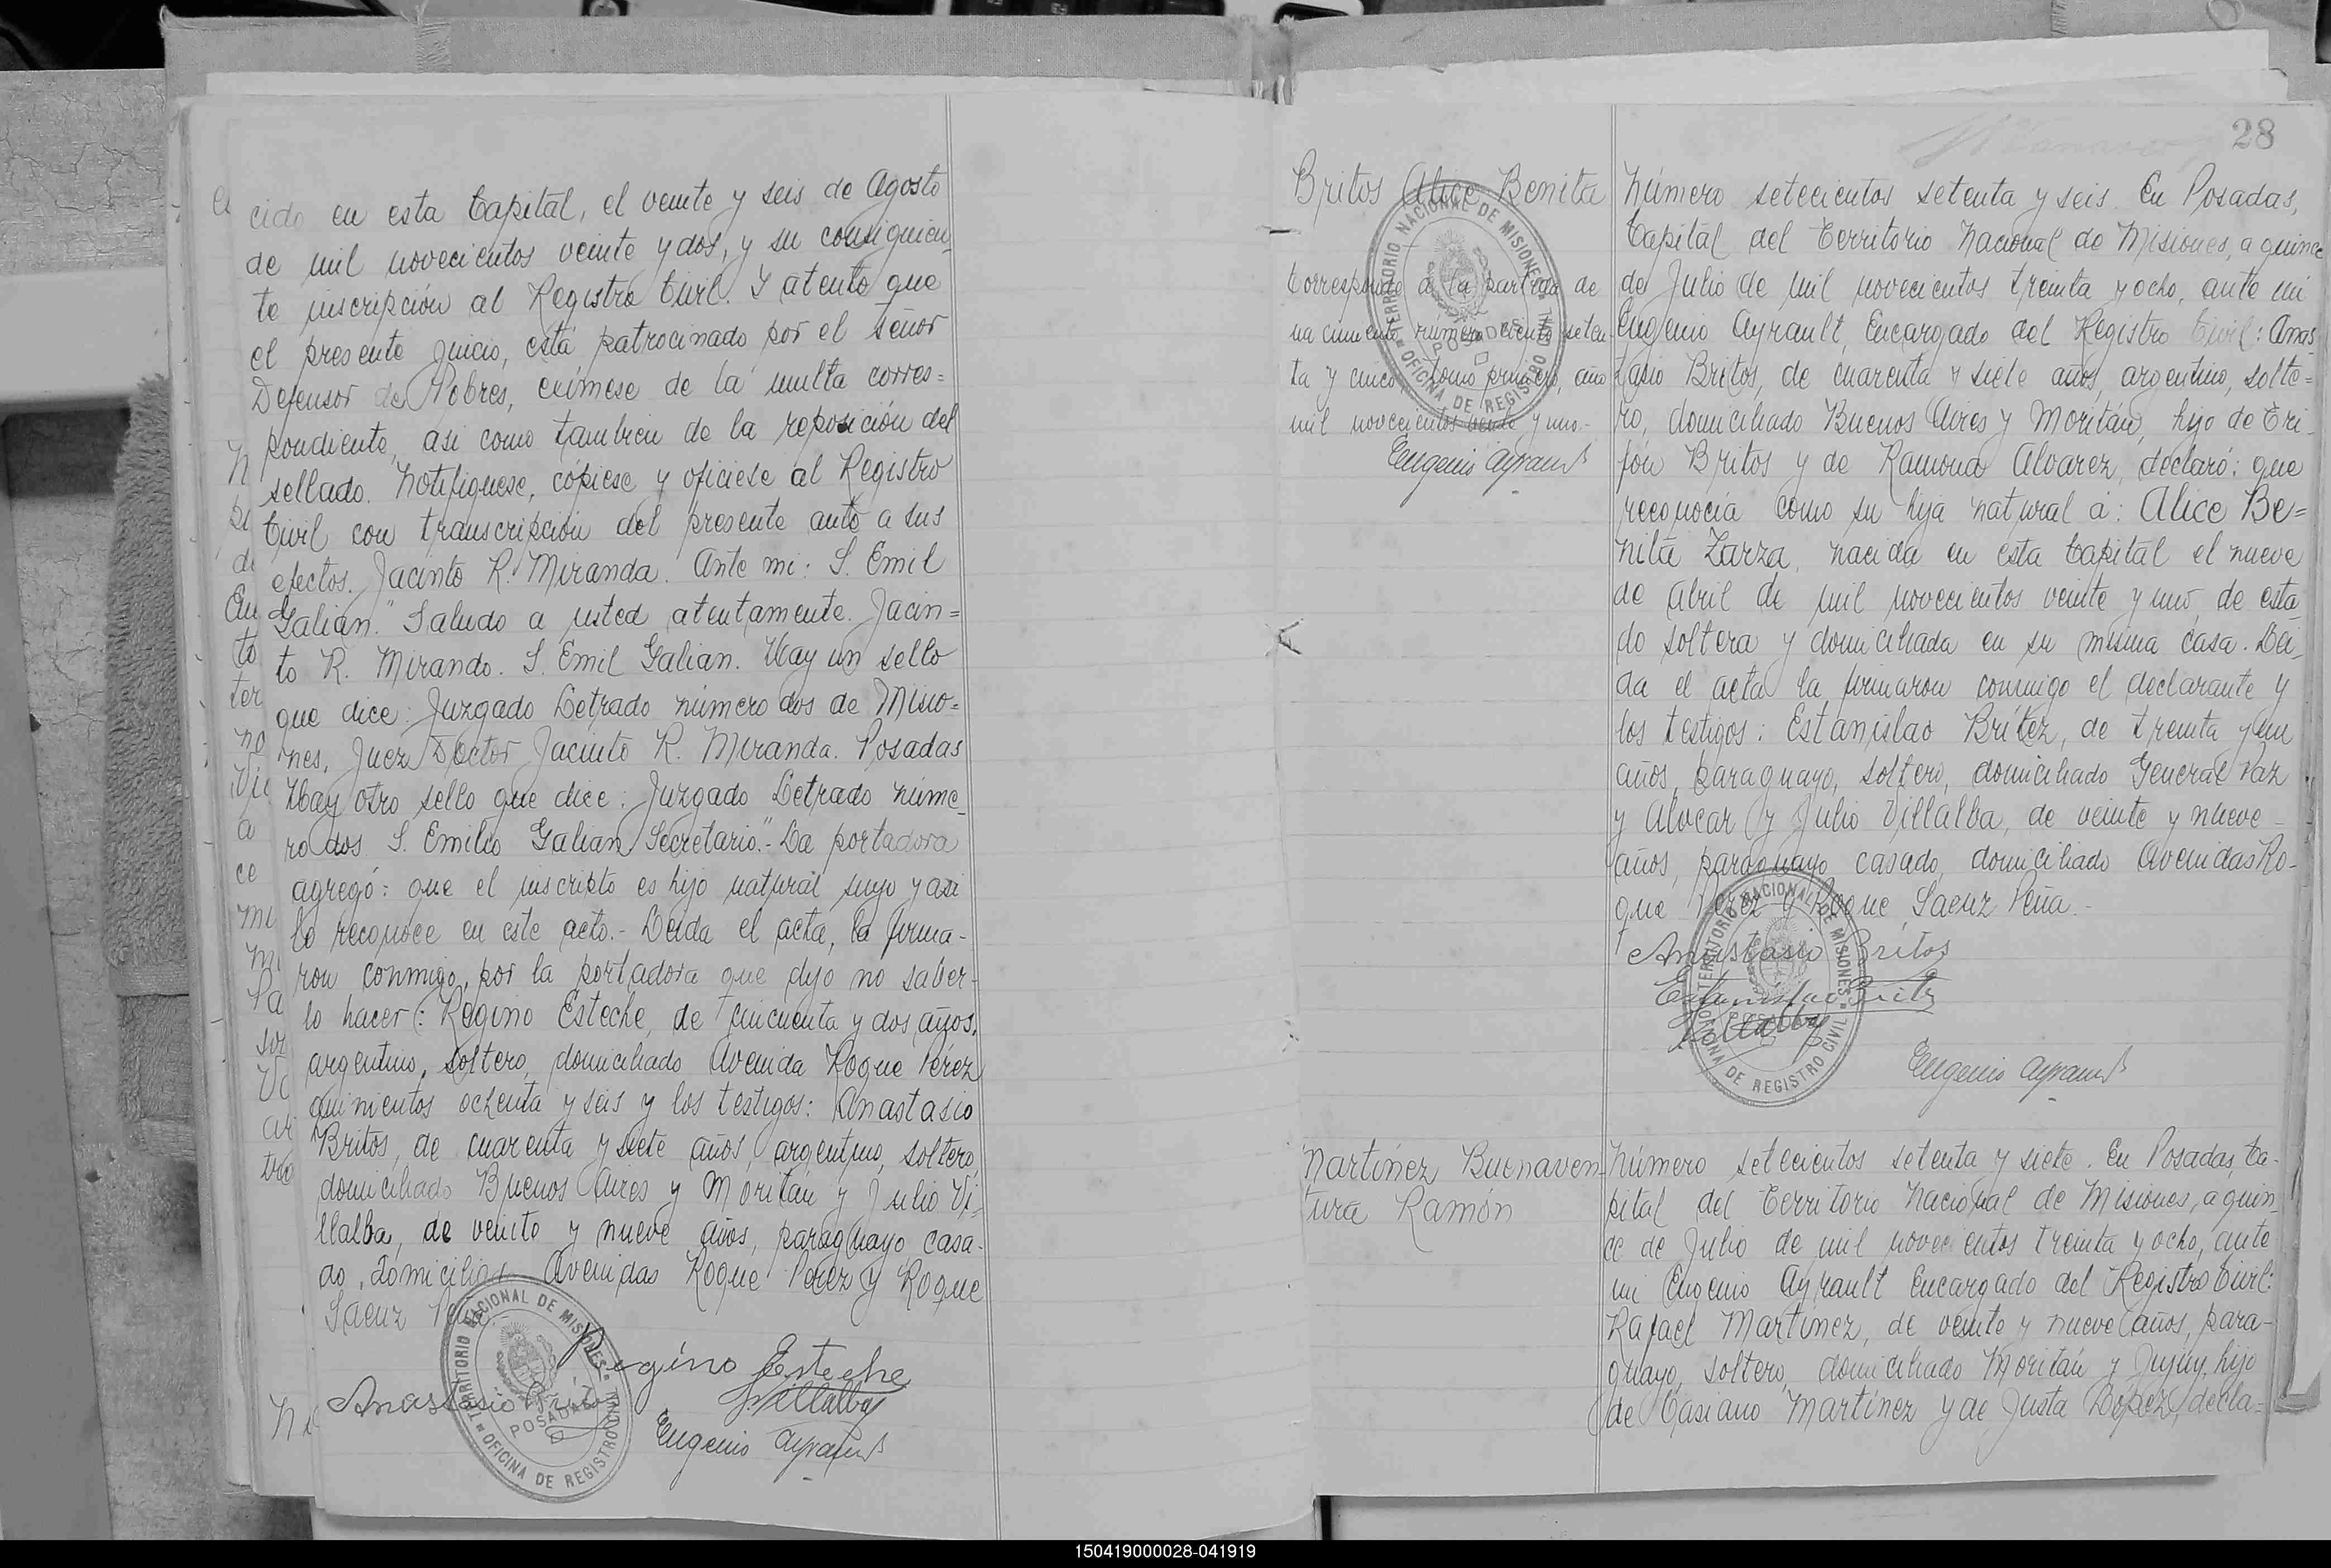 cido en esta Capital, el veinte y seis de Agosto
de mil novecientos veinte y dos, y su consiguien
te inscripción al Registro Civil. Y atento que
el presente juicio, está patrocinado por el señor
Defensor de Pobres, exímese de la multa corres=
pondiente, asi como tambien de la reposición del
sellado. Notifíquese, cópiese y ofíciese al Registro
Civil con transcripción del presente auto a sus
efectos. Jacinto R. Miranda. Ante mi: S. Emil
Galian." Saludo a usted atentamente. Jacin=
to R. Mirando. S. Emil Galian. Hay un sello
que dice: Juzgado Letrado número dos de Misio=
nes, Juez Doctor Jacinto R. Miranda. Posadas
Hay otro sello que dice: Juzgado Letrado núme
ro dos S. Emilio Galian Secretario."- La portadora
agregó: que el inscripto es hijo natural suyo y asi
lo reconoce en este acto.- Leida el acta, la firma-
ron conmigo, por la portadora que dijo no saber-
lo hacer: Regino Esteche, de cincuenta y dos años,
argentino, soltero, domiciliado Avenida Roque Pérez
quinientos ochenta y seis y los testigos: Anastasio
Britos, de cuarenta y siete años, argentino, soltero,
domiciliado Buenos Aires y Moritán y Julio Vi=
llalba, de veinte y nueve años, paraguayo casa-
do, domiciliado Avenidas Roque Perez y Roque
Saenz Peña.
Regino Esteche
Anastasio Britos
Villalba
Eugenio Ayrault
TERRITORIO NACIONAL DE MISIONES
POSADAS
OFICINA DE REGISTRO CIVIL
28
Britos Alice Benita
TERRITORIO NACIONAL DE MISIONES
POSADAS
OFICINA DE REGISTRO CIVIL
Corresponde a la partida de
na cimiento número ciento seten
ta y cinco, tomo primero, año
mil novecientos veinte y uno.-
Eugenio Ayrault
Número setecientos setenta y seis. En Posadas,
Capital del Territorio Nacional de Misiones, a quince
de Julio de mil novecientos treinta y ocho, ante mi
Eugenio Ayrault, Encargado del Registro Civil: Anas
tasio Britos, de cuarenta y siete años, argentino, solte=
ro, domiciliado Buenos Aires y Moritán, hijo de Tri-
fón Britos y de Ramona Alvarez, declaró: que
reconocía como su hija natural a: Alice Be=
nita Zarza, nacida en esta Capital el nueve
de Abril de mil novecientos veinte y uno, de esta
do soltera y domiciliada en su misma casa. Lei
da el acta la firmaron conmigo el declarante y
los testigos: Estanislao Brítez, de treinta y un
años, paraguayo, soltero, domiciliado General Paz
y Alvear y Julio Villalba, de veinte y nueve
años, paraguayo casado, domiciliado Avenidas Ro-
que Perez y Roque Saenz Peña.-
Anastasio Britos
Estanislao Britez
Villalba
Eugenio Ayrault
TERRITORIO NACIONAL DE MISIONES
POSADAS
OFICINA DE REGISTRO CIVIL
Martínez Buenaven-
tura Ramón
Número setecientos setenta y siete. En Posadas, Ca-
pital del Territorio Nacional de Misiones, a quin
ce de Julio de mil novecientos treinta y ocho, ante
mi Eugenio Ayrault Encargado del Registro Civil:
Rafael Martínez, de veinte y nueve años, para-
guayo, soltero, domiciliado Moritán y Jujuy, hijo
de Casiano Martínez y de Justa López, decla=
150419000028-041919